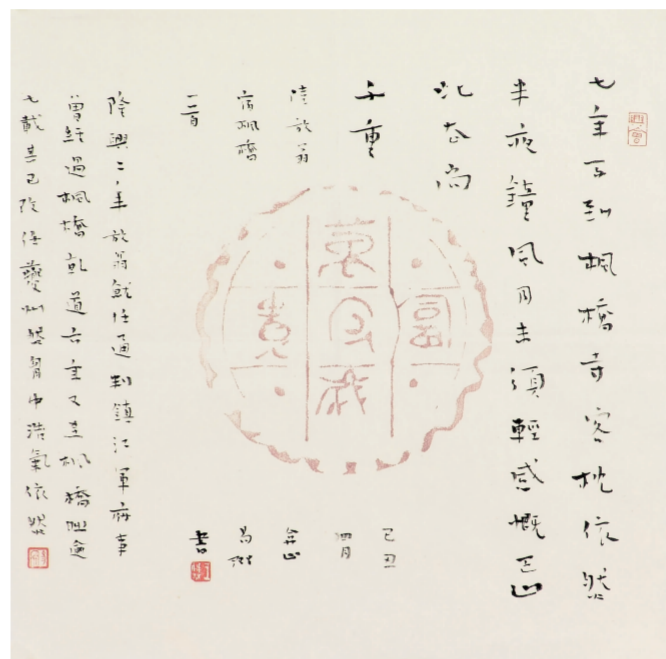 七年不到楓橋寺客枕依然
半夜鐘風月未須輕感慨巴山
此去尚
千重
陸放翁
宿楓橋
一首
己丑
四月
書
隆興二年放翁就任通判鎮江軍府事
曾經過楓橋乾道六年又至楓橋
七載其已改任夔州然胸中浩氣依然
萬歲
富貴